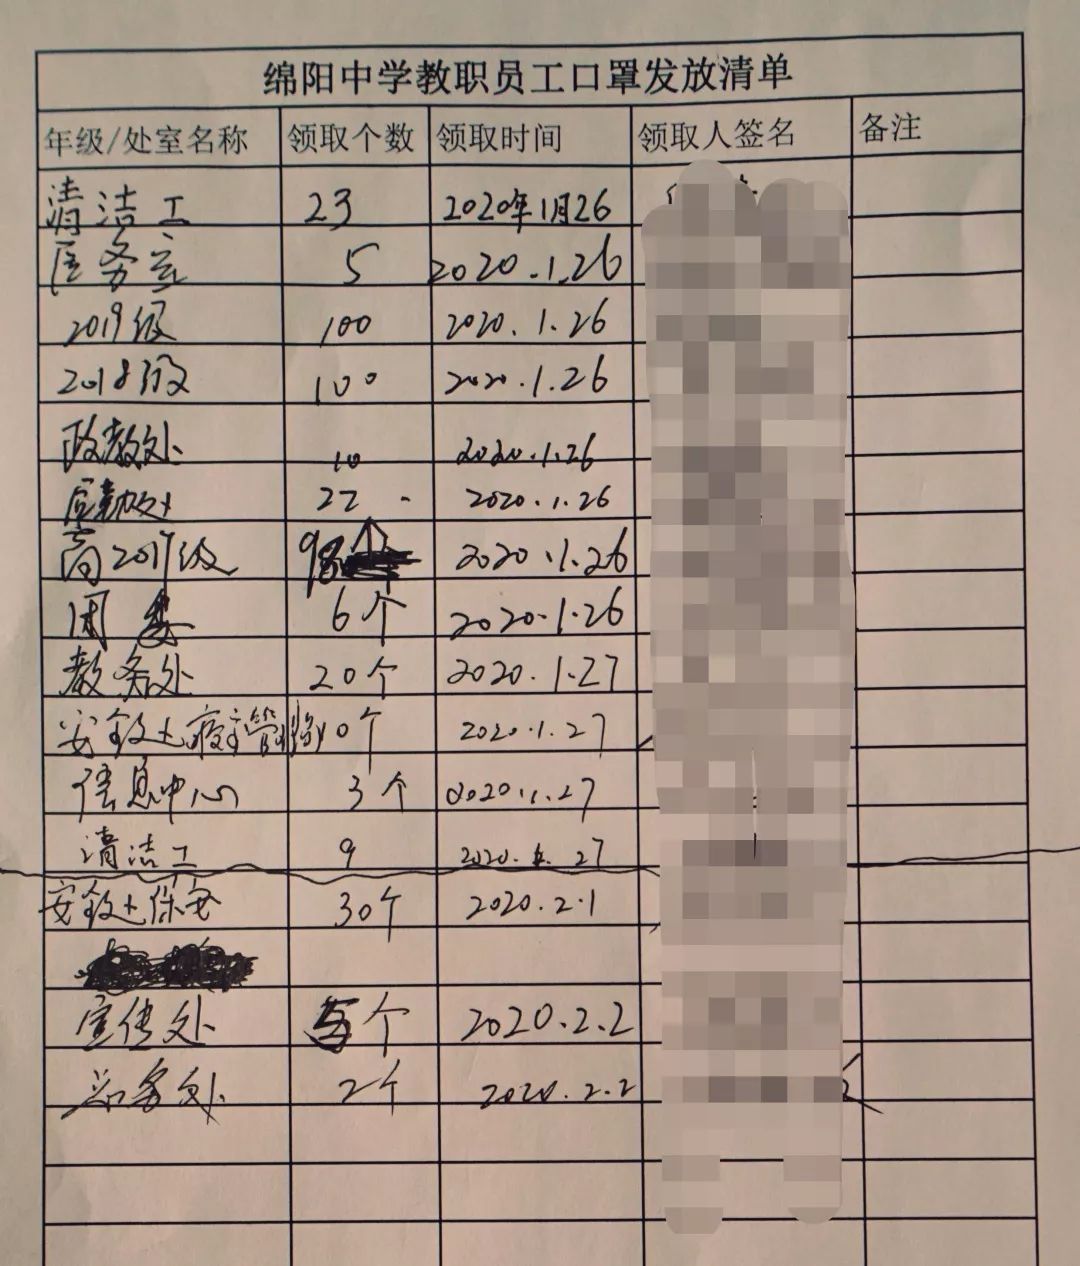 绵阳中学教职员工口罩发放清单
年级/处室名称 领取个数 领取时间 领取人签名 备注
清洁工 23 2020年1月26
医务室 5 2020.1.26
2019级 100 2020.1.26
2018级 100 2020.1.26
政教处 10 2020.1.26
后勤处 22 2020.1.26
高2017级 98 2020.1.26
团委 6个 2020.1.26
教务处 20个 2020.1.27
安全处 10个 2020.1.27
信息中心 3个 2020.1.27
清洁工 9 2020.1.27
安全处保安 30个 2020.2.1
宣传处 5个 2020.2.2
处 2个 2020.2.2